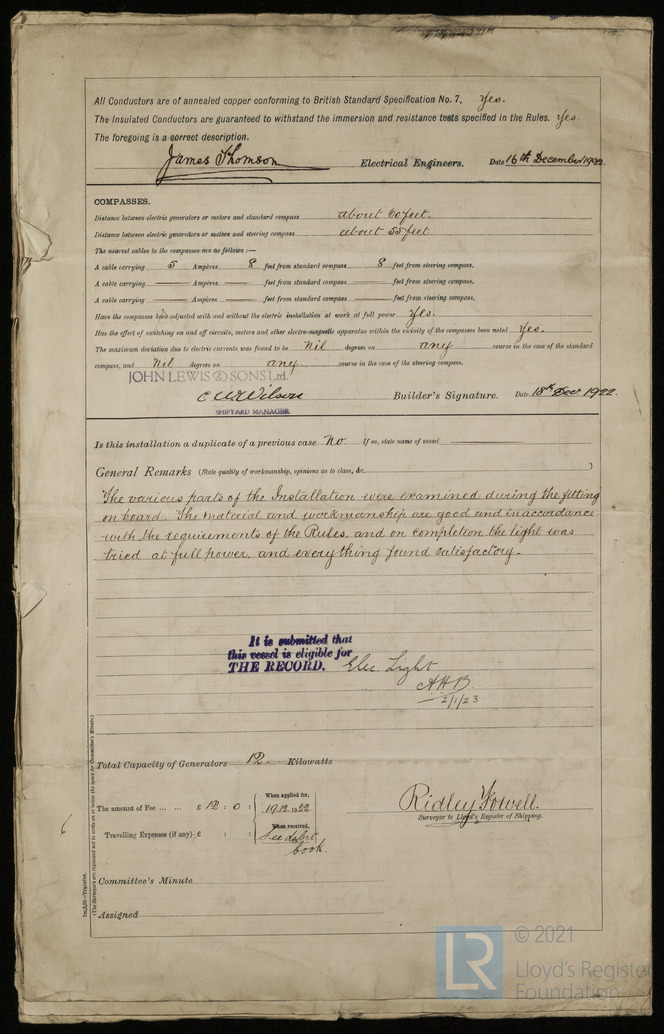 All Conductors are of annealed copper conforming to British Standard Specification No. 7. Yes.
The Insulated Conductors are guaranteed to withstand the immersion and resistance tests specified in the Rules. Yes
The foregoing is a correct description.
James Thomson Electrical Engineers. Date 16th December 1922
COMPASSES.
Distance between electric generators or motors and standard compass about 60 feet.
Distance between electric generators or motors and steering compass about 55 feet
The nearest cables to the compasses are as follows :—
A cable carrying 5 Ampères 8 feet from standard compass 8 feet from steering compass.
A cable carrying Ampères feet from standard compass feet from steering compass.
A cable carrying Ampères feet from standard compass feet from steering compass.
Have the compasses been adjusted with and without the electric installation at work at full power Yes.
Has the effect of switching on and off circuits, motors and other electro-magnetic apparatus within the vicinity of the compasses been noted Yes.
The maximum deviation due to electric currents was found to be Nil degrees on any course in the case of the standard
compass, and Nil degrees on any course in the case of the steering compass.
JOHN LEWIS & SONS Ltd.
Wilson Builder's Signature. Date 18th Dec 1922.
SHIPYARD MANAGER
Is this installation a duplicate of a previous case No If so, state name of vessel
General Remarks (State quality of workmanship, opinions as to class, &c. )
The various parts of the Installation were examined during the fitting
on board. The material and workmanship are good and in accordance
with the requirements of the Rules, and on completion the light was
tried at full power, and everything found satisfactory.
It is submitted that
this vessel is eligible for
THE RECORD. Elec Light
2/1/23
Total Capacity of Generators 12 Kilowatts
The amount of Fee ... ... £ 12 : 0 :
When applied for,
19.12.1922
Travelling Expenses (if any) £ : :
When received,
See debit
book.
Ridley Howell.
Surveyor to Lloyd's Register of Shipping.
Committee's Minute
Assigned
(The Surveyors are requested not to write on or below the space for Committee's Minute.)
6
LR © 2021
Lloyd's Register
Foundation